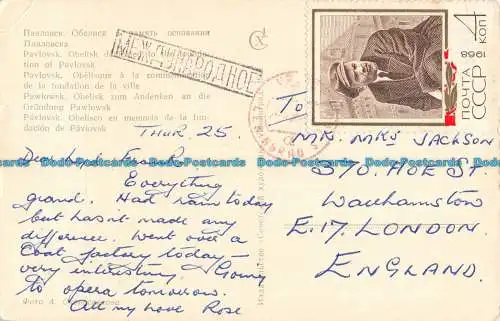 Павловск. Обелиск в память основания
Павловска
Pavlovsk. Obelisk
tion of Pavlovsk
Pavlovsk. Obélisque à la commémoration
de la fondation de la ville
Pawlowsk. Obelisk zum Andenken an die
Gründung Pawlowsk
Pávlovsk. Obelisco en memoria de la fun-
dación de Pávlovsk
МЕЖДУНАРОДНОЕ
4 коп
1968
ПОЧТА
СССР
THUR. 25.
Everything
grand. Had rain today
but hasn't made any
difference. Went over a
Coat factory today –
very interesting. Going
to opera tomorrow.
All my love Rose
TO
MR. MRS JACKSON
370. HOE ST.
Walthamstow
E.17. LONDON.
ENGLAND.
Фото А.
Dodo-Postcards Dodo-Postcards Dodo-Postcards Dodo-Postcards